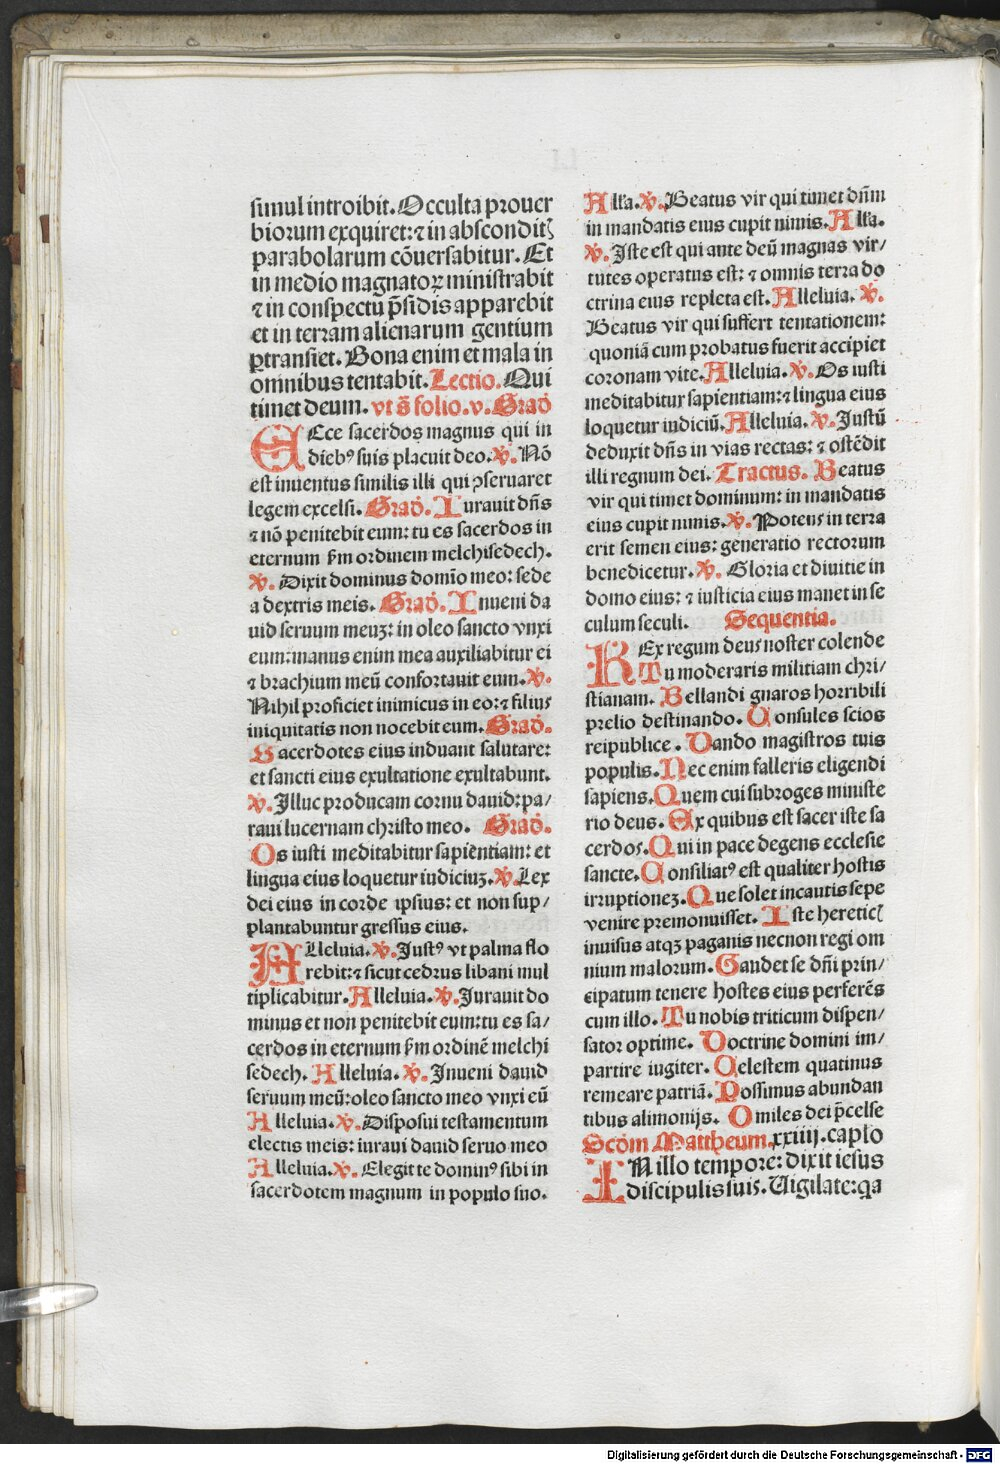 simul introibit. Occulta prouer
biorum exquiret: ⁊ in abscondit
parabolarum cōuersabitur. Et
in medio magnatoꝝ ministrabit
⁊ in conspectu p̄sidis apparebit
et in terram alienarum gentium
ꝑtransiet. Bona enim et mala in
omnibus tentabit. Lectio. Qui
timet deum. vt s̄ folio. v. Grad̄
ECce sacerdos magnus qui in
dieb⁹ suis placuit deo. ℣. Nō
est inuentus similis illi qui ꝯseruaret
legem excelsi. Grad̄. Iurauit dn̄s
⁊ nō penitebit eum: tu es sacerdos in
eternum ẜm ordinem melchisedech.
℣. Dixit dominus domīo meo: sede
a dextris meis. Grad̄. Inueni da
uid seruum meuꝫ: in oleo sancto vnxi
eum: manus enim mea auxiliabitur ei
⁊ brachium meū confortauit eum. ℣.
Nihil proficiet inimicus in eo: ⁊ filius
iniquitatis non nocebit eum. Grad̄.
Sacerdotes eius induant salutare:
et sancti eius exultatione exultabunt.
℣. Illuc producam cornu dauid: pa/
raui lucernam christo meo. Grad̄.
Os iusti meditabitur sapientiam: et
lingua eius loquetur iudiciuꝫ. ℣. Lex
dei eius in corde ipsius: et non sup/
plantabuntur gressus eius.
ALleluia. ℣. Just⁹ vt palma flo
rebit: ⁊ sicut cedrus libani mul
tiplicabitur. Alleluia. ℣. Jurauit do
minus et non penitebit eum: tu es sa/
cerdos in eternum ẜm ordinē melchi
sedech. Alleluia. ℣. Inueni dauid
seruum meū: oleo sancto meo vnxi eū
Alleluia. ℣. Disposui testamentum
electis meis: iuraui dauid seruo meo
Alleluia. ℣. Elegit te domin⁹ sibi in
sacerdotem magnum in populo suo.
All'a. ℣. Beatus vir qui timet dn̄m
in mandatis eius cupit nimis. All'a.
℣. Iste est qui ante deū magnas vir/
tutes operatus est: ⁊ omnis terra do
ctrina eius repleta est. Alleluia. ℣.
Beatus vir qui suffert tentationem:
quoniā cum probatus fuerit accipiet
coronam vite. Alleluia. ℣. Os iusti
meditabitur sapientiam: ⁊ lingua eius
loquetur iudiciū. Alleluia. ℣. Justū
deduxit dn̄s in vias rectas: ⁊ ostēdit
illi regnum dei. Tractus. Beatus
vir qui timet dominum: in mandatis
eius cupit nimis. ℣. Potens in terra
erit semen eius: generatio rectorum
benedicetur. ℣. Gloria et diuitie in
domo eius: ⁊ iusticia eius manet in se
culum seculi. Sequentia.
REx regum deus noster colende
Tu moderaris militiam chri/
stianam. Bellandi gnaros horribili
prelio destinando. Consules scios
reipublice. Dando magistros tuis
populis. Nec enim falleris eligendi
sapiens. Quem cui subroges ministe
rio deus. Ex quibus est sacer iste sa
cerdos. Qui in pace degens ecclesie
sancte. Consiliat⁹ est qualiter hostis
irruptioneꝫ. Que solet incautis sepe
venire premonuisset. Iste heretic
inuisus atqꝫ paganis necnon regi om
nium malorum. Gaudet se dn̄i prin/
cipatum tenere hostes eius perferēs
cum illo. Tu nobis triticum dispen/
sator optime. Doctrine domini im/
partire iugiter. Celestem quatinus
remeare patriā. Possimus abundan
tibus alimonijs. O miles dei p̄celse
Scd̄m Mattheum. xxiiij. caplo
IN illo tempore: dixit iesus
discipulis suis. Uigilate: qa
Digitalisierung gefördert durch die Deutsche Forschungsgemeinschaft - DFG